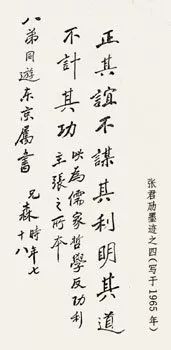 正其誼不謀其利明其道
不計其功
此為儒家哲學反功利
主張之所本
八弟同遊东京属書
兄森時年七
十八
张君劢墨迹之四(写于1965年)